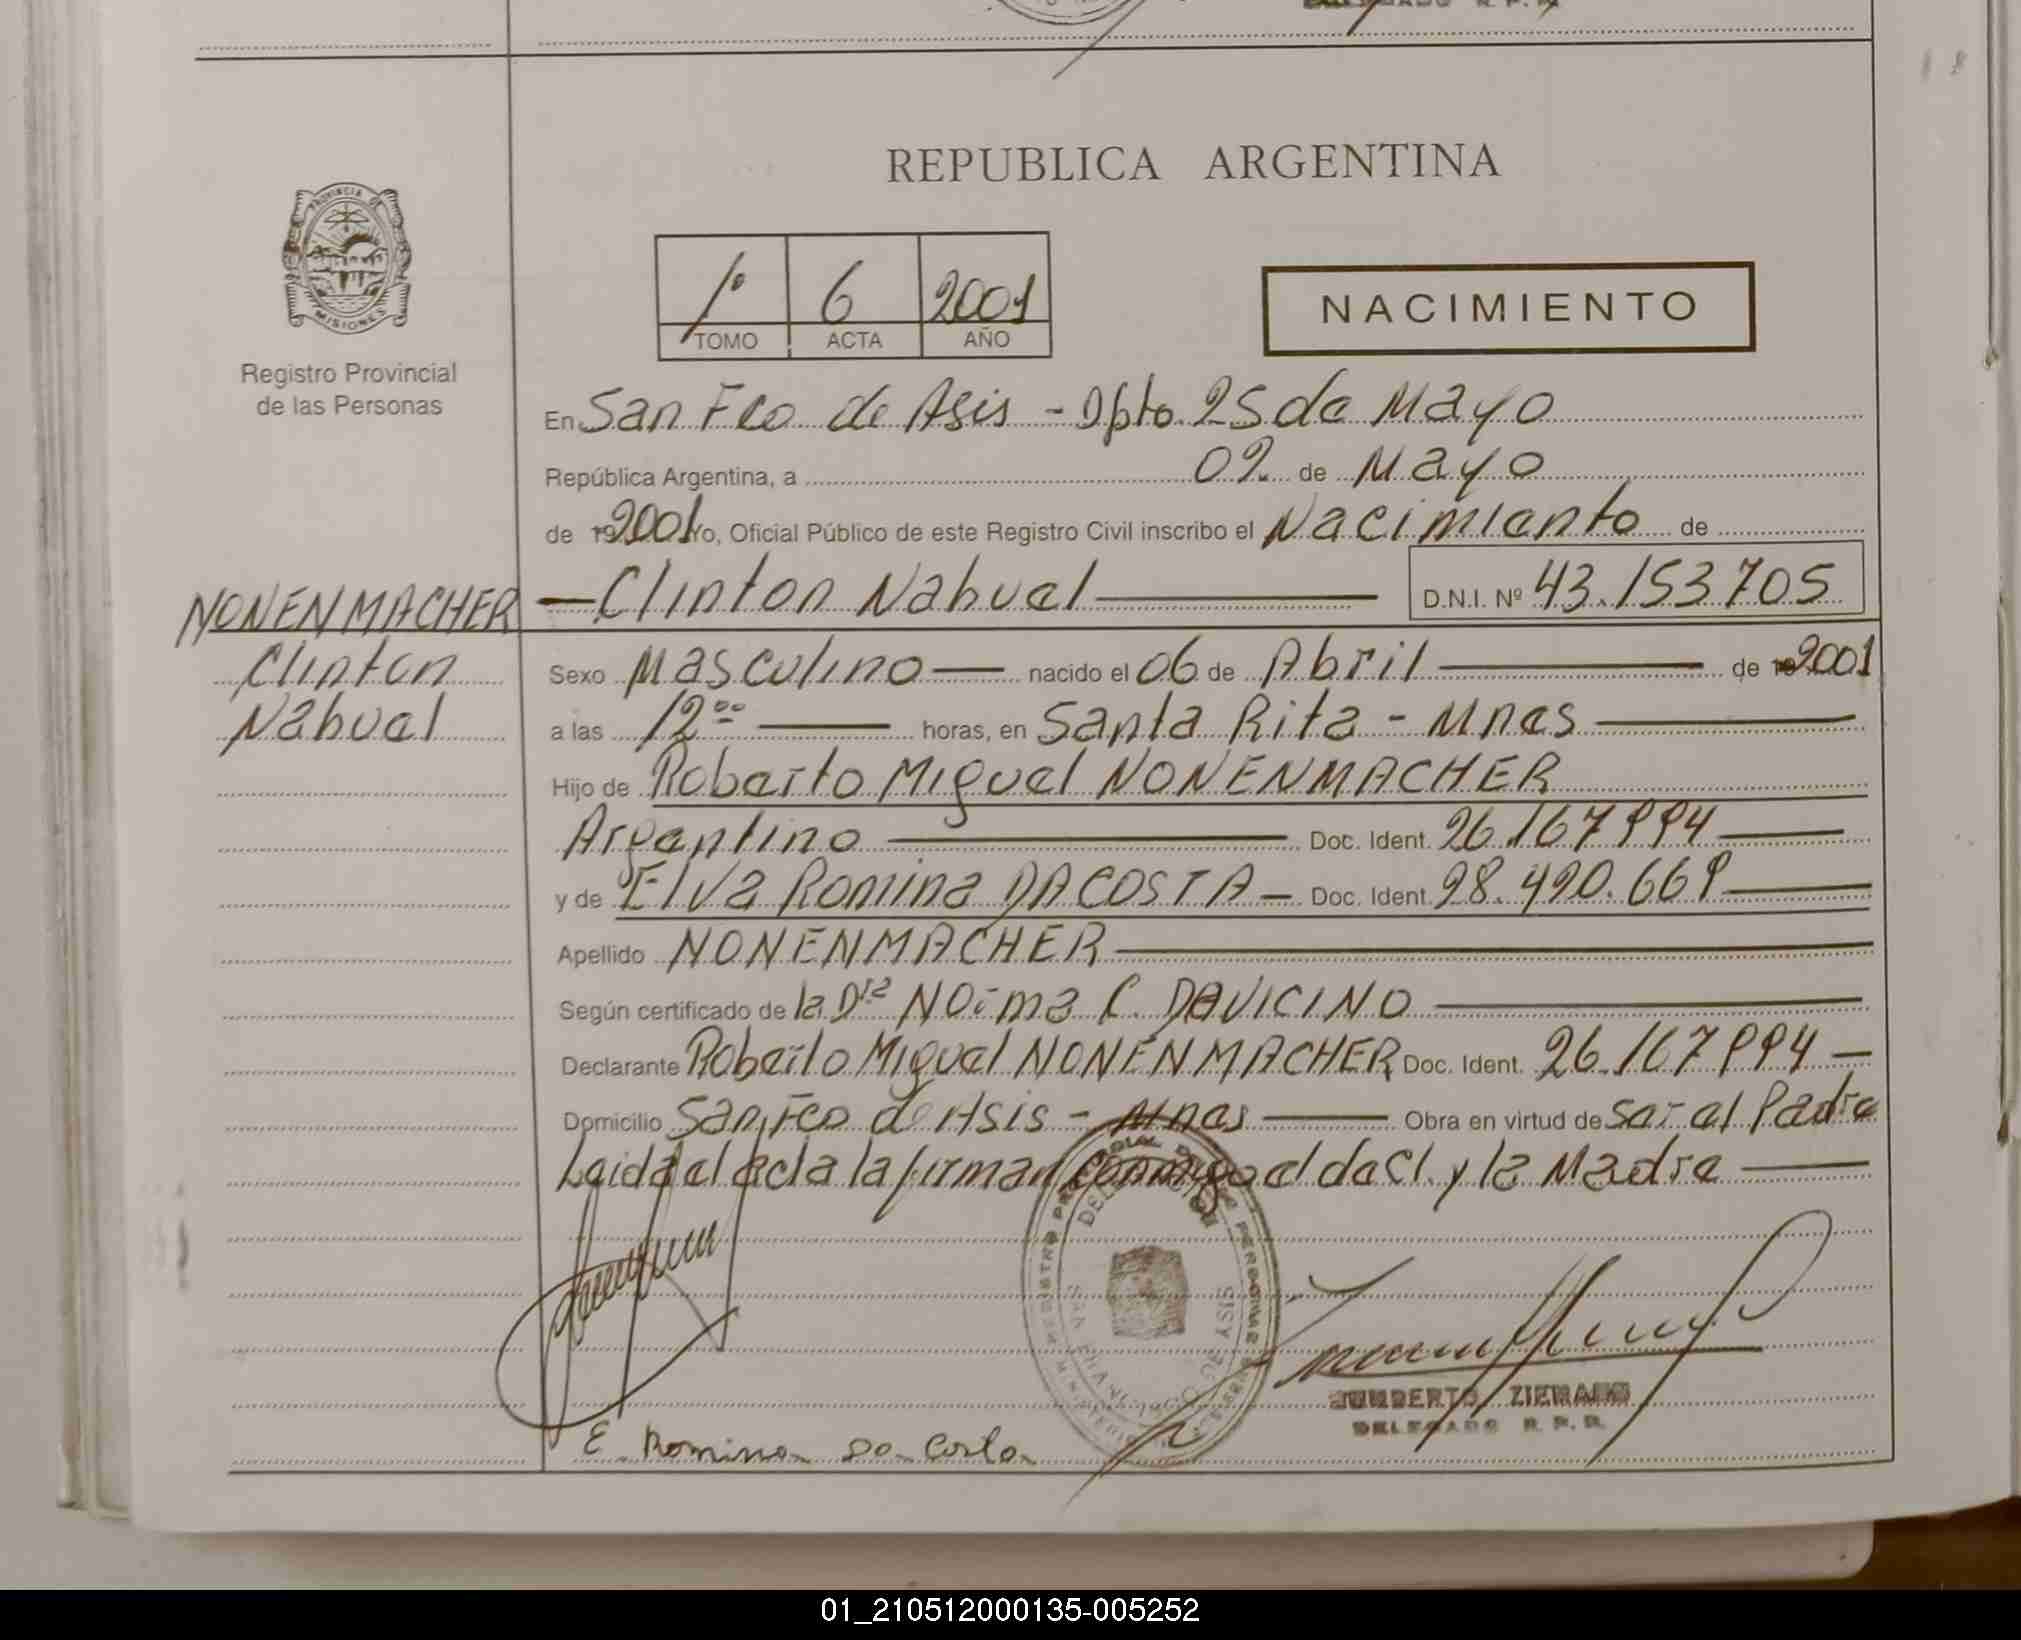 REPUBLICA ARGENTINA
PROVINCIA DE
MISIONES
Registro Provincial
de las Personas
1º 6 2001
TOMO ACTA AÑO
NACIMIENTO
En San Fco de Asis - Dpto 25 de Mayo
República Argentina, a 02 de Mayo
de 19 2001 Yo, Oficial Público de este Registro Civil inscribo el Nacimiento de
NONENMACHER
Clinton
Nahuel
Clinton Nahuel D.N.I. Nº 43.153705
Sexo Masculino nacido el 06 de Abril de 19 2001
a las 12 00 horas, en Santa Rita - Mnes
Hijo de Roberto Miguel NONENMACHER
Argentino Doc. Ident. 26.167994
y de Elva Romina DA COSTA - Doc. Ident. 28.420.669
Apellido NONENMACHER
Según certificado de la Dra Norma C. DAVICINO
Declarante Roberto Miguel NONENMACHER Doc. Ident. 26.167994
Domicilio San Fco de Asis - Mnes Obra en virtud de Ser el Padre
Leida el acta la firman conmigo el decl. y la Madre
SAN FRANCISCO DE ASIS
E. Romina Da Costa
HUMBERTO
DELEGADO R. P. P.
01_210512000135-005252